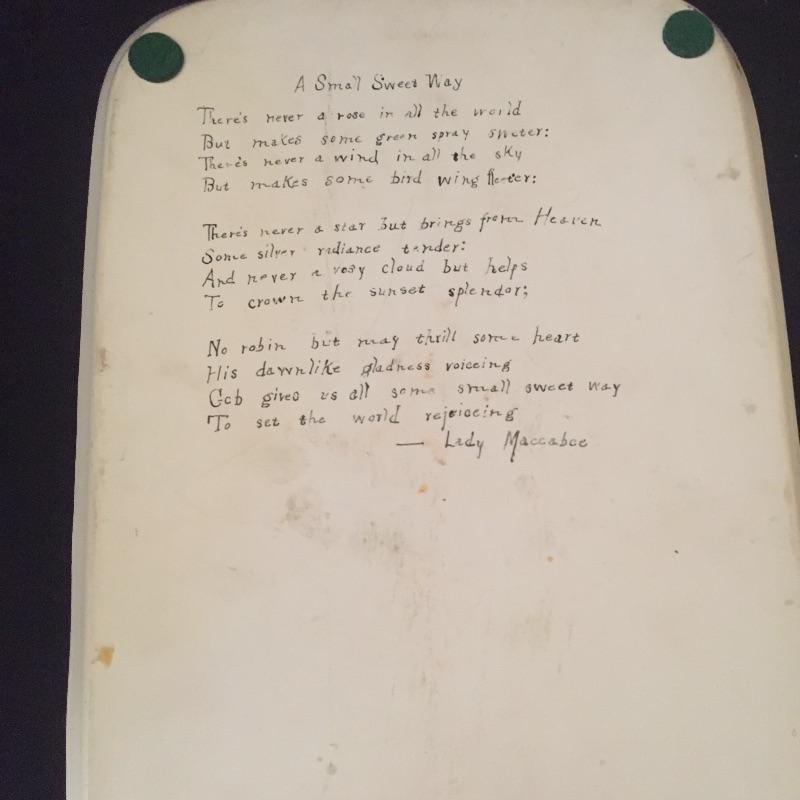 A Small Sweet Way
There's never a rose in all the world
But makes some green spray sweeter:
There's never a wind in all the sky
But makes some bird wing fleeter:
There's never a star but brings from Heaven
Some silver radiance tender:
And never a rosy cloud but helps
To crown the sunset splendor;
No robin but may thrill some heart
His dawnlike gladness voiceing
God gives us all some small sweet way
To set the world rejoiceing
— Lady Maccabee